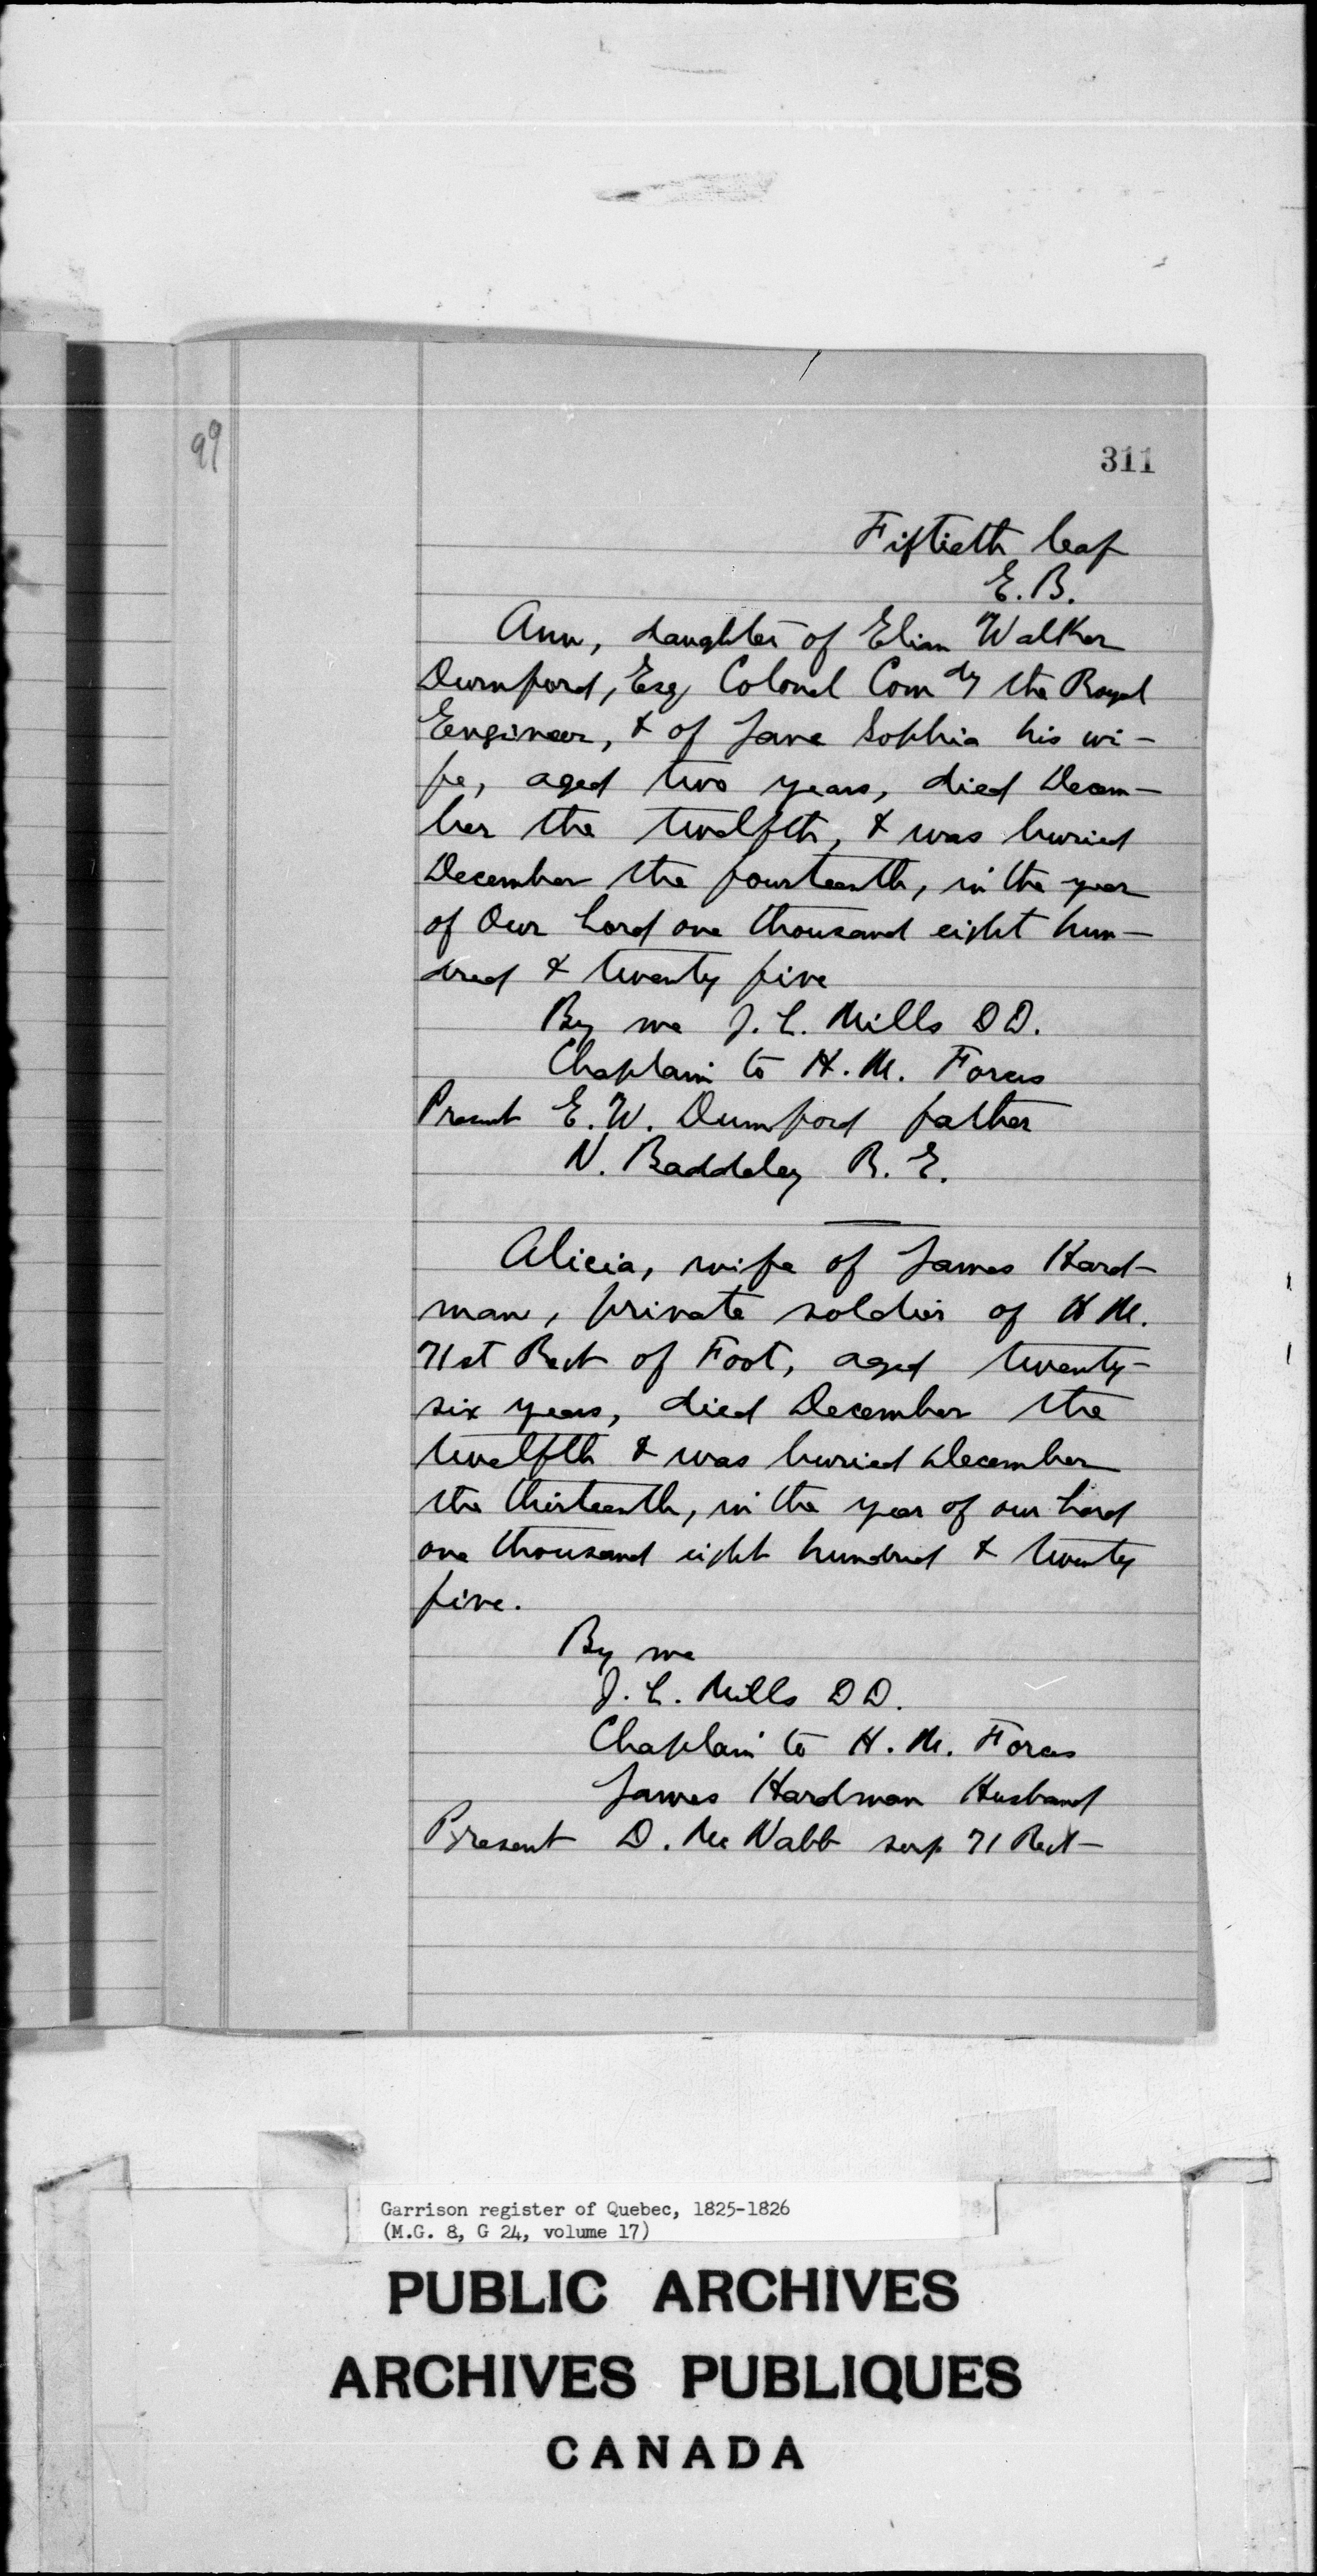 99
311
Fiftieth leaf
E. B.
Ann, daughter of Elian Walker
Durnford, Esq Colonel Com dg the Royal
Engineer, & of Jane Sophia his wi-
fe, aged two years, died Decem-
ber the twelfth, & was buried
December the fourteenth, in the year
of Our Lord one thousand eight hun-
dred & twenty five
By me J. L. Mills D D.
Chaplain to H. M. Forces
Present E. W. Durnford father
N. Baddeley R. E.
Alicia, wife of James Hard-
man, private soldier of H M.
71st Regt of Foot, aged twenty-
six years, died December the
twelfth & was buried December
the thirteenth, in the year of our Lord
one thousand eight hundred & twenty
five.
By me
J. L. Mills D D.
Chaplain to H. M. Forces
James Hardman Husband
Present D. Mc Nabb serg 71 Regt
Garrison register of Quebec, 1825-1826
(M.G. 8, G 24, volume 17)
PUBLIC ARCHIVES
ARCHIVES PUBLIQUES
CANADA